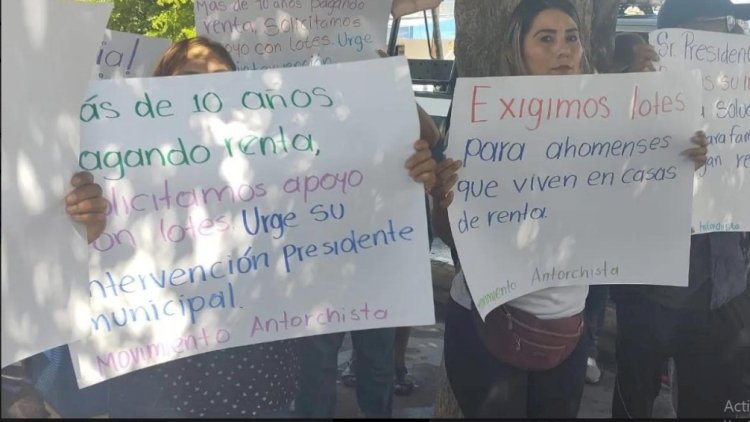 Más de 10 años pagando
renta, Solicitamos
yo con lotes. Urge
intervención
ia!
ás de 10 años
agando renta,
olicitamos apoyo
on lotes. Urge su
ntervención presidente
municipal.
Movimiento Antorchista
Exigimos lotes
para ahomenses
que viven en casas
de renta.
ovimiento Antorchista
Sr. Presiden
s su in
a soluc
ara fam
an re
Antorchista
Acti